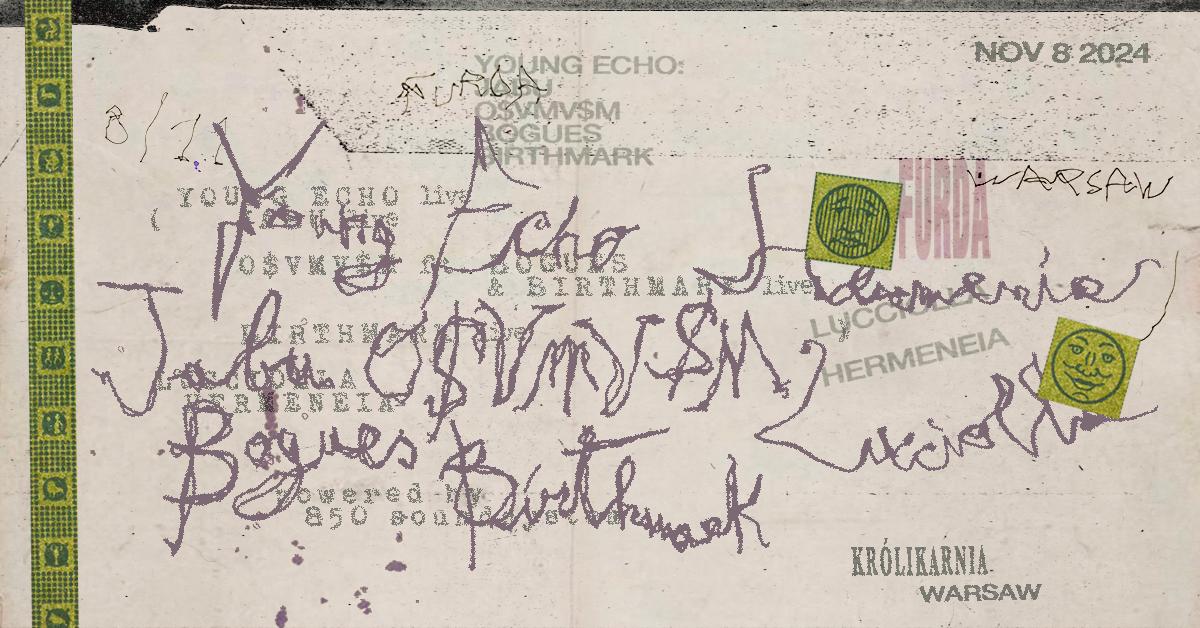 NOV 8 2024
YOUNG ECHO:
JABU
O$VMV$M
BOGUES
BIRTHMARK
FURDA
8/11
WARSAW
FURDA
YOUNG ECHO live
JABU live
O$VMV$M ft. BOGUES
& BIRTHMARK live
BIRTHMARK live
LUCCIOLLA
HERMENEIA
powered by
850 soundsystem
Young Echo Hermeneia
Jabu O$VMV$M Lucciolla
Bogues Birthmark
LUCCIOLLA
HERMENEIA
KRÓLIKARNIA
WARSAW